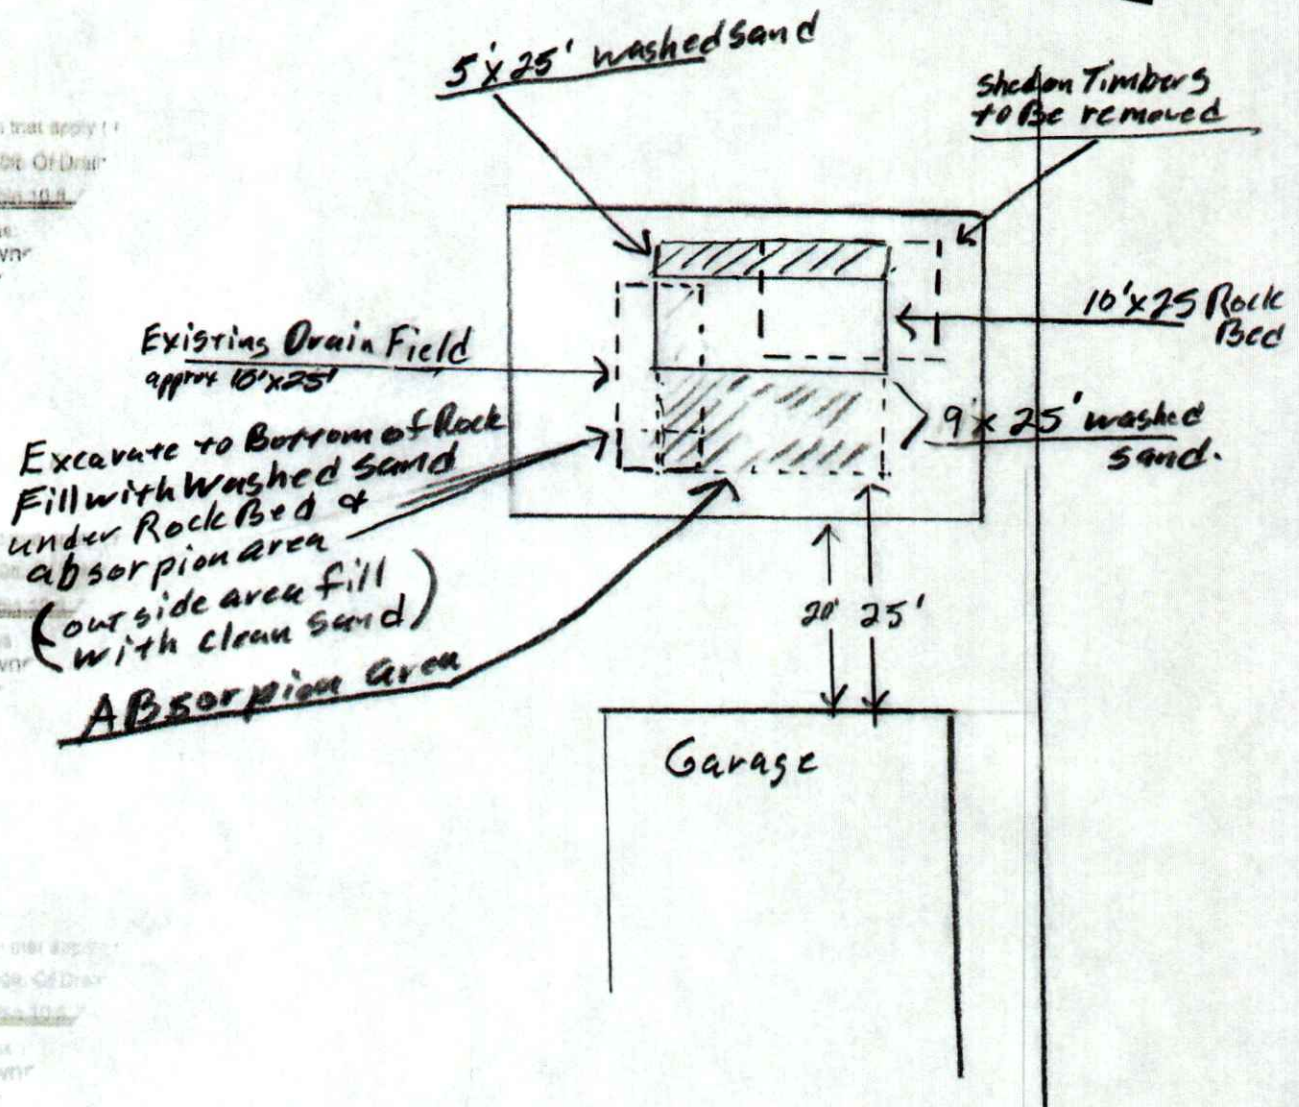 5'x25' washed sand
Shed on Timbers
to Be removed
10'x25 Rock
Bed
Existing Drain Field
approx 10'x25'
9'x25' washed
sand.
Excavate to Bottom of Rock
Fill with Washed Sand
under Rock Bed &
absorpion area
(out side area fill
with clean sand)
ABsorpion area
20' 25'
Garage
that apply
Of Drain